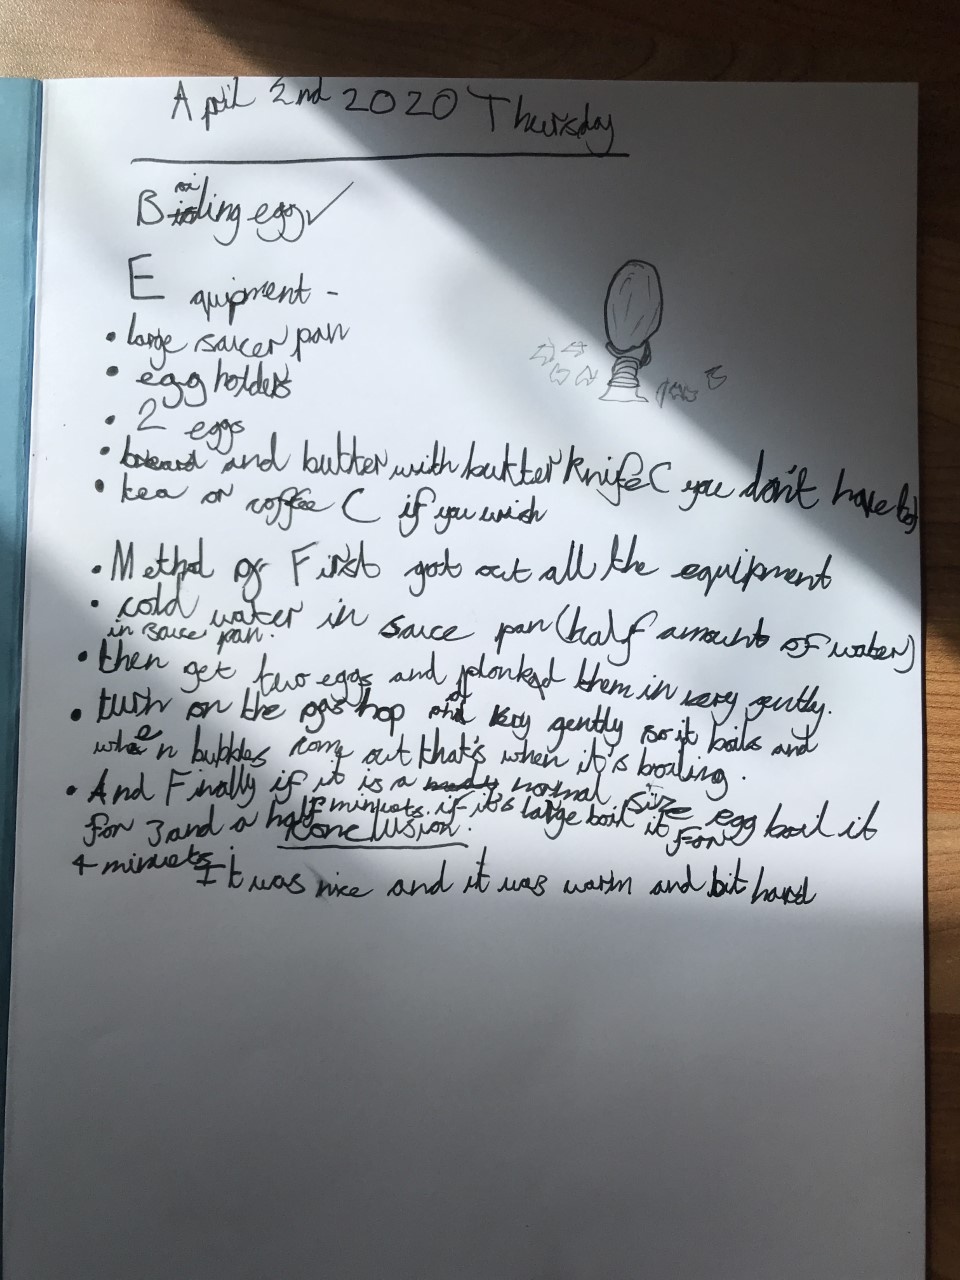 April 2nd 2020 Thursday
Boiling egg ✓
Equipment -
• large saucer pan
• egg holders
• 2 eggs
• bread and butter with butter knife ( you don't have to)
• tea or coffee ( if you wish
• Method First got out all the equipment
• cold water in sauce pan (half amount of water)
in sauce pan.
• then get two eggs and plonked them in very gently.
• turn on the gas hop very gently so it boils and
when bubbles come out that's when it's boiling.
• And Finally if it is a normal size egg boil it
for 3 and a half minuets. if it's large boil it for
4 minuets.
Conclusion.
It was nice and it was warm and bit hard